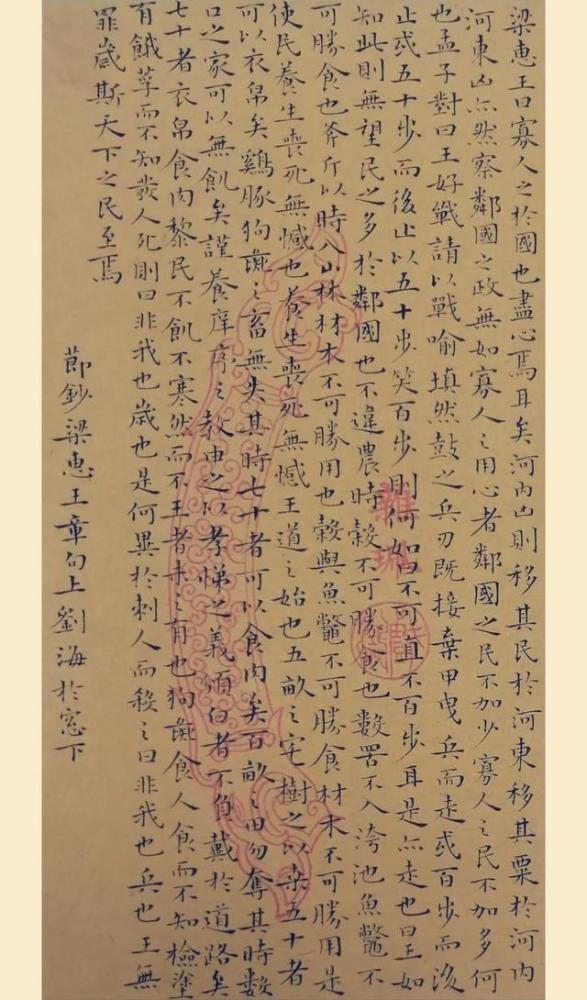 梁惠王曰寡人之於國也盡心焉耳矣河內凶則移其民於河東移其粟於河內
河東凶亦然察鄰國之政無如寡人之用心者鄰國之民不加少寡人之民不加多何
也孟子對曰王好戰請以戰喻填然鼓之兵刃既接棄甲曳兵而走或百步而後
止或五十步而後止以五十步笑百步則何如曰不可直不百步耳是亦走也曰王如
知此則無望民之多於鄰國也不違農時穀不可勝食也數罟不入洿池魚鱉不
可勝食也斧斤以時入山林材木不可勝用也穀與魚鱉不可勝食材木不可勝用是
使民養生喪死無憾也養生喪死無憾王道之始也五畝之宅樹之以桑五十者
可以衣帛矣鷄豚狗彘之畜無失其時七十者可以食肉矣百畝之田勿奪其時數
口之家可以無飢矣謹養庠序之教申之以孝悌之義頒白者不負戴於道路矣
七十者衣帛食肉黎民不飢不寒然而不王者未之有也狗彘食人食而不知檢塗
有餓莩而不知發人死則曰非我也歲也是何異於刺人而殺之曰非我也兵也王無
罪歲斯天下之民至焉
節鈔梁惠王章句上劉海於窓下